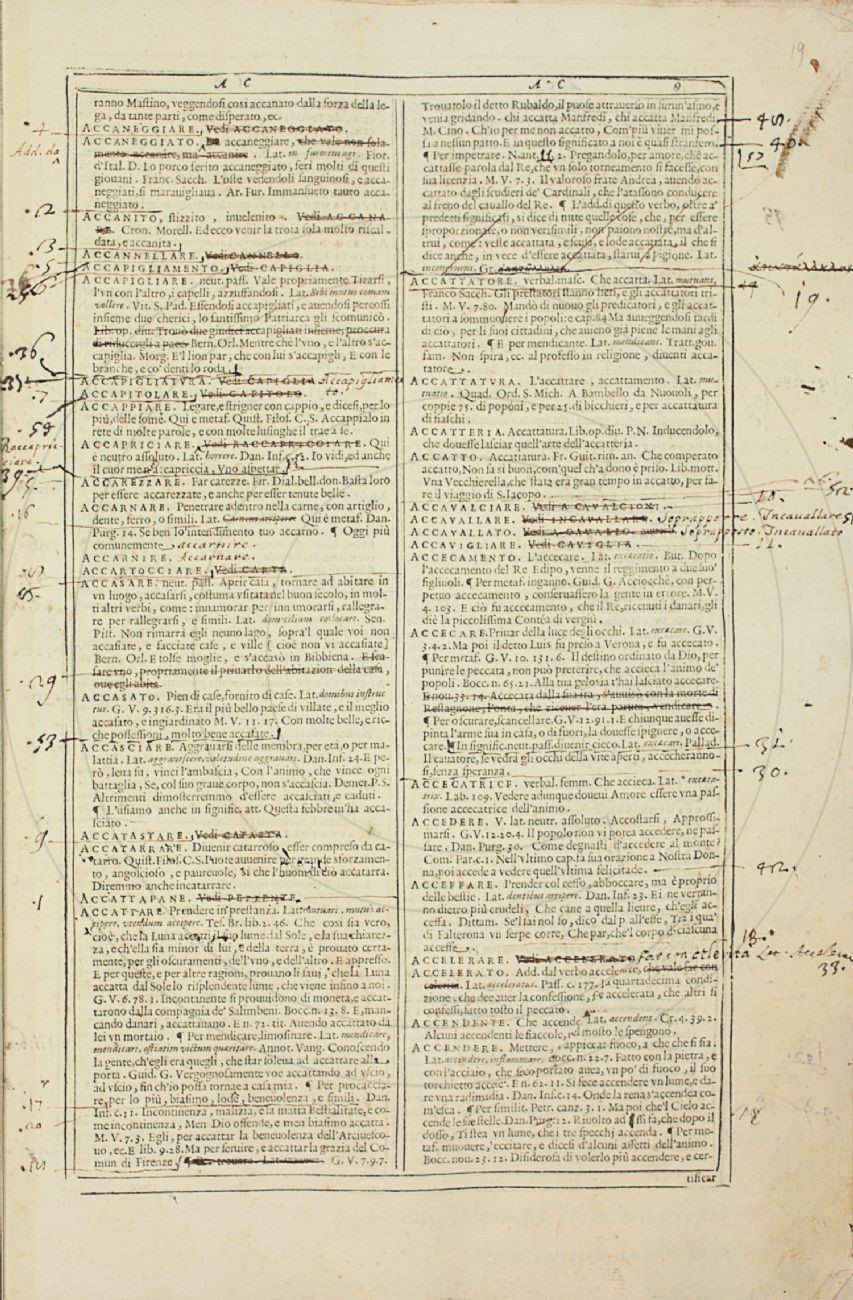 A C
A C 9
19
ranno Mastino, veggendosi così accanato dalla forza della le-
ga, da tante parti, come disperato, ec.
ACCANEGGIARE. Vedi ACCANEGGIATO.
ACCANEGGIATO. Da accaneggiare, che vale non sola-
mente accanare, ma accanire. Lat. Fior.
d'Ital. D. Lo porco ferito accaneggiato, ferì molti di questi
giouani. Franc. Sacch. L'oste vedendoli sanguinosi, e acca-
neggiati, si marauigliaua. Ar. Fur. Immansueto tauro acca-
neggiato.
ACCANITO, stizzito, inuelenito. Vedi ACCANA-
RE. Cron. Morell. Ed ecco venir la troia sola molto riscal-
data, e accanita.
ACCANNELLARE. Vedi CANNELLO.
ACCAPIGLIAMENTO. Vedi CAPIGLIA.
ACCAPIGLIARE. neut. pass. Vale propriamente Tirarsi,
l'vn con l'altro, i capelli, azzuffandosi. Lat. Sibi mutuo comam
vellere. Vit. S. Pad. Essendosi accapigliati, e auendosi percossi
insieme due cherici, lo santissimo Patriarca gli scomunicò.
Librop. diu. Trouò due giudici accapigliati insieme, proccura
di riducergli a pace. Bern. Orl. Mentre che l'vno, e l'altro s'ac-
capiglia. Morg. E'l lion par, che con lui s'accapigli, E con le
branche, e co' denti lo roda.
ACCAPIGLIATVRA. Vedi CAPIGLIA. Accapigliamento.
ACCAPITOLARE. Vedi CAPITOLO.
ACCAPPIARE. Legare, e strigner con cappio, e dicesi, per lo
più, delle some. Qui è metaf. Quist. Filos. C. S. Accappialo in
rete di molte parole, e con molte lusinghe il trae a se.
ACCAPRICIARE. Vedi RACCAPRICCIARE. Qui
è neutro assoluto. Lat. horrere. Dan. Inf. c. 22. Io vidi, ed anche
il cuor men accapriccia, Vno aspettar.
ACCAREZZARE. Far carezze. Fir. Dial. bell. don. Basta loro
per essere accarezzate, e anche per esser tenute belle.
ACCARNARE. Penetrare adentro nella carne, con artiglio,
dente, ferro, o simili. Lat. Qui è metaf. Dan.
Purg. 14. Se ben lo 'ntendimento tuo accarno. ¶ Oggi più
comunemente accarnire.
ACCARNIRE. Accarnare.
ACCARTOCCIARE. Vedi CARTA.
ACCASARE. neut. pass. Aprir casa, tornare ad abitare in
vn luogo, accasarsi, costuma vsitata nel buon secolo, in mol-
ti altri verbi, come: innamorar per innamorarsi, rallegra-
re per rallegrarsi, e simili. Lat. domicilium collocare. Sen.
Pist. Non rimarrà egli neuno lago, sopra'l quale voi non
accasiate, e facciate case, e ville [ cioè non vi accasiate]
Bern. Orl. E tolse moglie, e s'accasò in Bibbiena. E sca-
sare vno, propriamente il priuarlo dell'abitazion della casa,
oue egli abita.
ACCASATO. Pien di case, fornito di case. Lat. domibus instruc
tus. G. V. 9. 316. 3. Era il più bello paese di villate, e il meglio
accasato, e ingiardinato M. V. 11. 17. Con molte belle, e ric-
che possessioni, molto bene accasate.
ACCASCIARE. Aggrauarsi delle membra, per età, o per ma-
lattia. Lat. aggrauescere, valetudine aggrauari. Dan. Inf. 24. E pe-
rò, leua su, vinci l'ambascia, Con l'animo, che vince ogni
battaglia, Se, col suo graue corpo, non s'accascia. Demet. P. S.
Altrimenti dimosterremmo d'essere accasciati, e caduti.
¶ L'usiamo anche in signific. att. Questa febbre m'ha acca-
sciato.
ACCATASTARE. Vedi CATASTA.
ACCATARRARE. Diuenir catarroso, esser compreso da ca-
tarro. Quist. Filos. C. S. Puote auuenire per grande sforzamen-
to, angoscioso, e paureuole, sì che l'huom di ciò accatarra.
Diremmo anche incatarrare.
ACCATTAPANE. Vedi PEZZENTE.
ACCATTARE. Prendere in prestanza. Lat. Mutuari, mutuò ac-
cipere, vtendum accipere. Tes. Br. lib. 2. 46. Che così sia vero,
cioè, che la Luna accatti suo lume dal Sole, e la sua chiarez-
za, e ch'ella sia minor di lui, e della terra, è prouato certa-
mente, per gli oscuramenti, dell'vno, e dell'altro. E appresso.
E per queste, e per altre ragioni, prouano li saui, che la Luna
accatta dal Sole lo risplendente lume, che viene infino a noi.
G. V. 6. 78. 1. Incontanente si prouuidono di moneta, e accat-
tarono dalla compagnia de' Salimbeni. Bocc. n. 13. 8. E, man-
cando danari, accattauano. E n. 72. tit. Auendo accattato da
lei vn mortaio. ¶ Per mendicare, limosinare. Lat. mendicare,
mendicari, ostiatim victum quaeritare. Annot. Vang. Conoscendo
la gente, ch'egli era quegli, che star soleua ad accattare alla
porta. Guid. G. Vergognosamente voe accattando ad vscio,
ad vscio, fin ch'io possa tornare a casa mia. ¶ Per procaccia-
re, per lo più, biasimo, lode, beneuolenza, e simili. Dan.
Inf. c. 11. Incontinenza, malizia, e la matta Bestialitate, e co-
me incontinenza, Men Dio offende, e men biasimo accatta.
M. V. 7. 3. Egli, per accattar la beneuolenza dell'Arciuesco-
uo, ec. E lib. 9. 28. Ma per seruire, e accattar la grazia del Co-
mun di Firenze. G. V. 7. 9. 7.
Trouatolo il detto Rubaldo, il puose attrauerso in su vn'asino, e
venia gridando. chi accatta Manfredi, chi accatta Manfredi.
M. Cino. Ch'io per me non accatto, Com'più viuer mi pos-
sa a nessun patto. E in questo significato a noi è quasi straniero.
¶ Per impetrare. N. ant. 2. Pregandolo, per amore, che ac-
cattasse parola dal Re, che vn solo torneamento si facesse, con
sua licenzia. M. V. 7. 3. Il valoroso frate Andrea, auendo ac-
cattato dagli scudieri de' Cardinali, che l'atassono conducere
al freno del cauallo del Re. ¶ L'add. di questo verbo, oltre a'
predetti significati, si dice di tutte quelle cose, che, per essere
sproporzionate, o non verisimili, non paiono nostre, ma d'al-
trui, come: veste accattata, e scusa, e lode accattata, il che si
dice anche, in vece d'essere accattata, starui a pigione. Lat.
inconueniens. Gr.
ACCATTATORE. verbal. masc. Che accatta. Lat. mutuans.
Franco Sacch. Gli prestatori stanno lieti, e gli accattatori tri-
sti. M. V. 7. 80. Mandò di nuouo gli predicatori, e gli accat-
tatori a sommuouere i popoli: e cap. 84 Ma auueggendosi tardi
di ciò, per li suoi cittadini, che auieno già piene le mani agli
accattatori. ¶ E per mendicante. Lat. mendicans. Tratt. gou.
fam. Non spira, ec. al professo in religione, diuenti acca-
tatore.
ACCATTATVRA. L'accattare, accattamento. Lat. mu-
tuatio. Quad. Ord. S. Mich. A Bambello da Nuouoli, per
coppie 75. di poponi, e per 25. di bicchieri, e per accattatura
di fiaschi.
ACCATTERIA. Accattatura. Lib. op. diu. P. N. Inducendolo,
che douesse lasciar quell'arte dell'accatteria.
ACCATTO. Accattatura. Fr. Guit. rim. an. Che comperato
accatto, Non fa sì buon, com'quel ch'a dono è priso. Lib. mott.
Vna Vecchierella, che stata era gran tempo in accatto, per fa-
re il viaggio di S. Iacopo.
ACCAVALCIARE. Vedi A CAVALCIONI.
ACCAVALLARE. Vedi INCAVALLARE. Soprapporre. Incauallare
ACCAVALLATO. Vedi A CAVALLO. Soprapposto. Incauallato
ACCAVIGLIARE. Vedi CAVIGLIA.
ACCECAMENTO. L'accecare. Lat. excæcatio. But. Dopo
l'accecamento del Re Edipo, venne il reggimento a due suo'
figliuoli. ¶ Per metaf. inganno. Guid. G. Acciocchè, con per-
petuo accecamento, conseruassero la gente in errore. M. V.
4. 103. E ciò fu accecamento, che il Re, riceuuti i danari, gli
diè la piccolissima Contèa di vergiù.
ACCECARE. Priuar della luce degli occhi. Lat. excæcare. G. V.
3. 4. 2. Ma poi il detto Luis fu preso a Verona, e fu accecato.
¶ Per metaf. G. V. 10. 131. 6. Il destino ordinato da Dio, per
punire le peccata, non può preterire, che accieca l'animo de'
popoli. Bocc. n. 65. 21. Alla tua gelosia t'hai lasciato accecare.
E nou. 33. 14. Accecata dalla sua ira, s'auuisò con la morte di
Restagnone, l'onta, che riceuer l'era paruta, vendicare.
¶ Per oscurare, scancellare. G. V. 12. 91. 1. E chiunque auesse di-
pinta l'arme sua in casa, o di fuori, la douesse ispignere, o acce-
care. In signific. neut. pass. diuenir cieco. Lat. excæcari. Pallad.
Il cauatore, se vedrà gli occhi della vite aperti, accecheranno-
si, senza speranza.
ACCECATRICE. verbal. femm. Che accieca. Lat. excæca-
trix. Lab. 109. Vedere adunque douei Amore essere vna pas-
sione accecatrice dell'animo.
ACCEDERE. V. lat. neutr. assoluto. Accostarsi, Appressi-
marsi. G. V. 12. 20. 4. Il popolo non vi potea accedere, nè pas-
sare. Dan. Purg. 30. Come degnasti d'accedere al monte?
Com. Par. c. 1. Nell'vltimo cap. fa sua orazione a Nostra Don-
na, poi accede a vedere quell'vltima felicitade.
ACCEFFARE. Prender col ceffo, abboccare, ma è proprio
delle bestie. Lat. dentibus arripere. Dan. Inf. 23. Ei ne verran-
no dietro più crudeli, Che cane a quella lieure, ch'egli ac-
ceffa. Dittam. Se'l sai nol so, dico dal p all'esse, Tra i qua'
di Falterona vn serpe corre, Che par, che'l corpo di ciascuna
acceffe.
ACCELERARE. Vedi ACCELERATO. far con celerità Lat. Accelerare
ACCELERATO. Add. dal verbo accelerare, che vale far con
celerità. Lat. acceleratus. Pass. c. 177. La quartadecima condi-
zione, che dee auer la confessione, s'è accelerata, che altri si
confessi, tutto tosto il peccato.
ACCENDENTE. Che accende. Lat. accendens. Cr. 4. 39. 2.
Alcuni accendenti le fiaccole, nel mosto le spengono.
ACCENDERE. Mettere, e appiccar fuoco, a che che si sia.
Lat. accendere, inflammare. Bocc. n. 22. 7. Fatto con la pietra, e
con l'acciaio, che seco portato auea, vn po' di fuoco, il suo
torchietto accese. E n. 62. 11. Si fece accendere vn lume, e da-
re vna radimadia. Dan. Inf. c. 14. Onde la rena s'accendea co-
m'esca. ¶ Per similit. Petr. canz. 3. 1. Ma poi che'l Cielo ac-
cende le sue stelle. Dan. Purg. 2. Riuolto ad essi fa, che dopo il
dosso, Ti stea vn lume, che i tre specchi accenda. ¶ Per me-
taf. muouere, 'eccitare, e dicesi d'alcuni affetti dell'animo.
Bocc. nou. 23. 12. Disiderosa di volerlo più accendere, e cer-
tificar
4
Add. da
12
13
5
256
36
7
58
Raccapric-
ciare
39
16
29
53
9
1
17
45.
40.
152
19.
10.
11.
31.
30.
42.
18.
33.
18